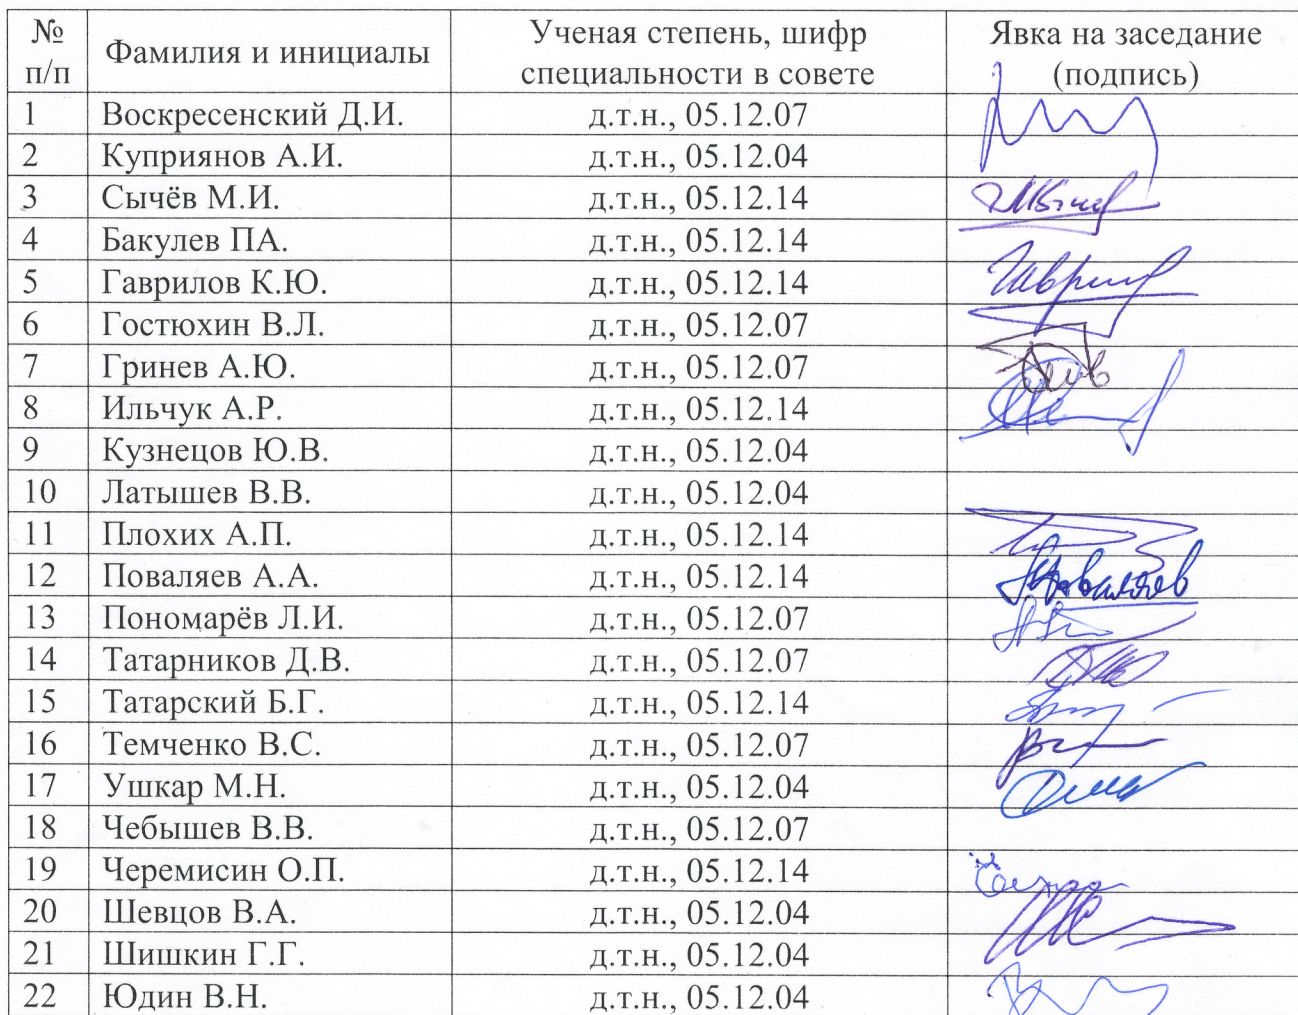 № п/п Фамилия и инициалы Ученая степень, шифр специальности в совете Явка на заседание (подпись)
1 Воскресенский Д.И. д.т.н., 05.12.07
2 Куприянов А.И. д.т.н., 05.12.04
3 Сычёв М.И. д.т.н., 05.12.14
4 Бакулев ПА. д.т.н., 05.12.14
5 Гаврилов К.Ю. д.т.н., 05.12.14
6 Гостюхин В.Л. д.т.н., 05.12.07
7 Гринев А.Ю. д.т.н., 05.12.07
8 Ильчук А.Р. д.т.н., 05.12.14
9 Кузнецов Ю.В. д.т.н., 05.12.04
10 Латышев В.В. д.т.н., 05.12.04
11 Плохих А.П. д.т.н., 05.12.14
12 Поваляев А.А. д.т.н., 05.12.14 Поваляев
13 Пономарёв Л.И. д.т.н., 05.12.07
14 Татарников Д.В. д.т.н., 05.12.07
15 Татарский Б.Г. д.т.н., 05.12.14
16 Темченко В.С. д.т.н., 05.12.07
17 Ушкар М.Н. д.т.н., 05.12.04
18 Чебышев В.В. д.т.н., 05.12.07
19 Черемисин О.П. д.т.н., 05.12.14
20 Шевцов В.А. д.т.н., 05.12.04
21 Шишкин Г.Г. д.т.н., 05.12.04
22 Юдин В.Н. д.т.н., 05.12.04